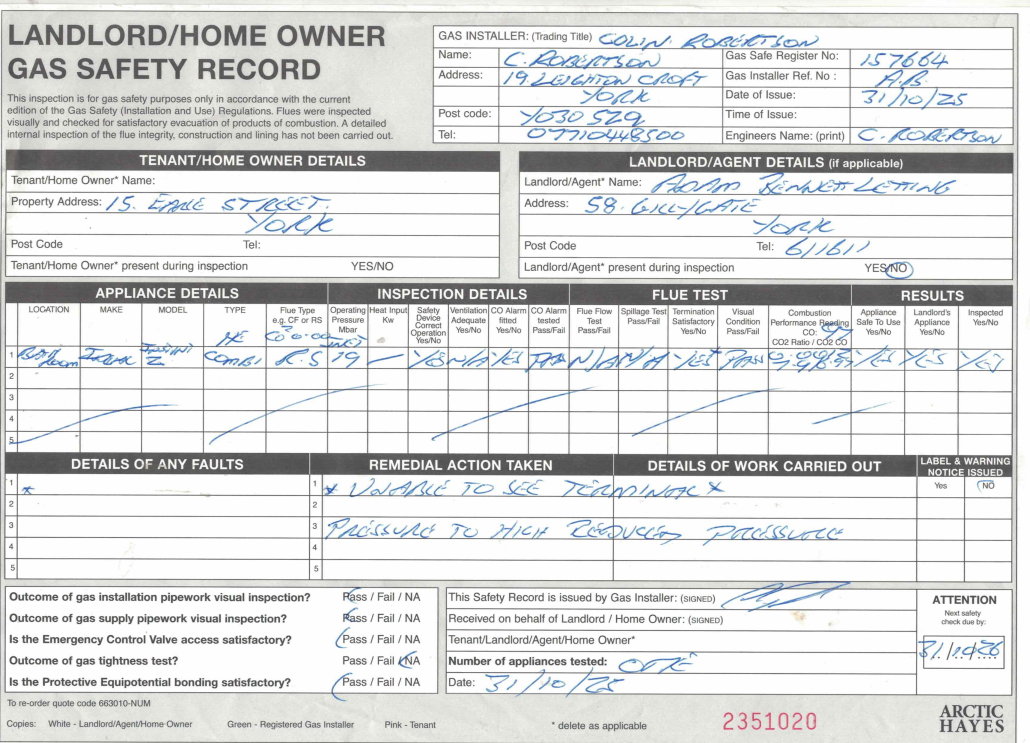 LANDLORD/HOME OWNER
GAS SAFETY RECORD
This inspection is for gas safety purposes only in accordance with the current
edition of the Gas Safety (Installation and Use) Regulations. Flues were inspected
visually and checked for satisfactory evacuation of products of combustion. A detailed
internal inspection of the flue integrity, construction and lining has not been carried out.
GAS INSTALLER: (Trading Title) COLIN ROBERTSON
Name: C. ROBERTSON Gas Safe Register No: 157664
Address: 19. LEIGHTON CROFT Gas Installer Ref. No : A.B.
YORK Date of Issue: 31/10/25
Post code: YO30 5ZQ Time of Issue:
Tel: 07710448500 Engineers Name: (print) C. ROBERTSON
TENANT/HOME OWNER DETAILS
Tenant/Home Owner* Name:
Property Address: 15. EARLE STREET.
YORK
Post Code Tel:
Tenant/Home Owner* present during inspection YES/NO
LANDLORD/AGENT DETAILS (if applicable)
Landlord/Agent* Name: ADAM BENNETT LETTING
Address: 58. GILLYGATE
YORK
Post Code Tel: 611611
Landlord/Agent* present during inspection YES/NO
APPLIANCE DETAILS INSPECTION DETAILS FLUE TEST RESULTS
LOCATION MAKE MODEL TYPE Flue Type e.g. CF or RS Operating Pressure Mbar Heat Input Kw Safety Device Correct Operation Yes/No Ventilation Adequate Yes/No CO Alarm fitted Yes/No CO Alarm tested Pass/Fail Flue Flow Test Pass/Fail Spillage Test Pass/Fail Termination Satisfactory Yes/No Visual Condition Pass/Fail Combustion Performance Reading CO: CO2 Ratio / CO2 CO Appliance Safe To Use Yes/No Landlord's Appliance Yes/No Inspected Yes/No
1 COMBI RS 19 - YES N/A YES PASS N/A N/A YES PASS YES YES YES
2
3
4
5
DETAILS OF ANY FAULTS REMEDIAL ACTION TAKEN DETAILS OF WORK CARRIED OUT LABEL & WARNING NOTICE ISSUED
Yes NO
1 * 1 * UNABLE TO SEE TERMINAL *
2 2
3 3 PRESSURE TO HIGH REDUCED PRESSURE
4 4
5 5
Outcome of gas installation pipework visual inspection? Pass / Fail / NA
Outcome of gas supply pipework visual inspection? Pass / Fail / NA
Is the Emergency Control Valve access satisfactory? Pass / Fail / NA
Outcome of gas tightness test? Pass / Fail / NA
Is the Protective Equipotential bonding satisfactory? Pass / Fail / NA
This Safety Record is issued by Gas Installer: (SIGNED)
Received on behalf of Landlord / Home Owner: (SIGNED)
Tenant/Landlord/Agent/Home Owner*
Number of appliances tested: ONE
Date: 31/10/25
ATTENTION
Next safety
check due by:
31/10/26
To re-order quote code 663010-NUM
Copies: White - Landlord/Agent/Home Owner Green - Registered Gas Installer Pink - Tenant * delete as applicable 2351020
ARCTIC
HAYES